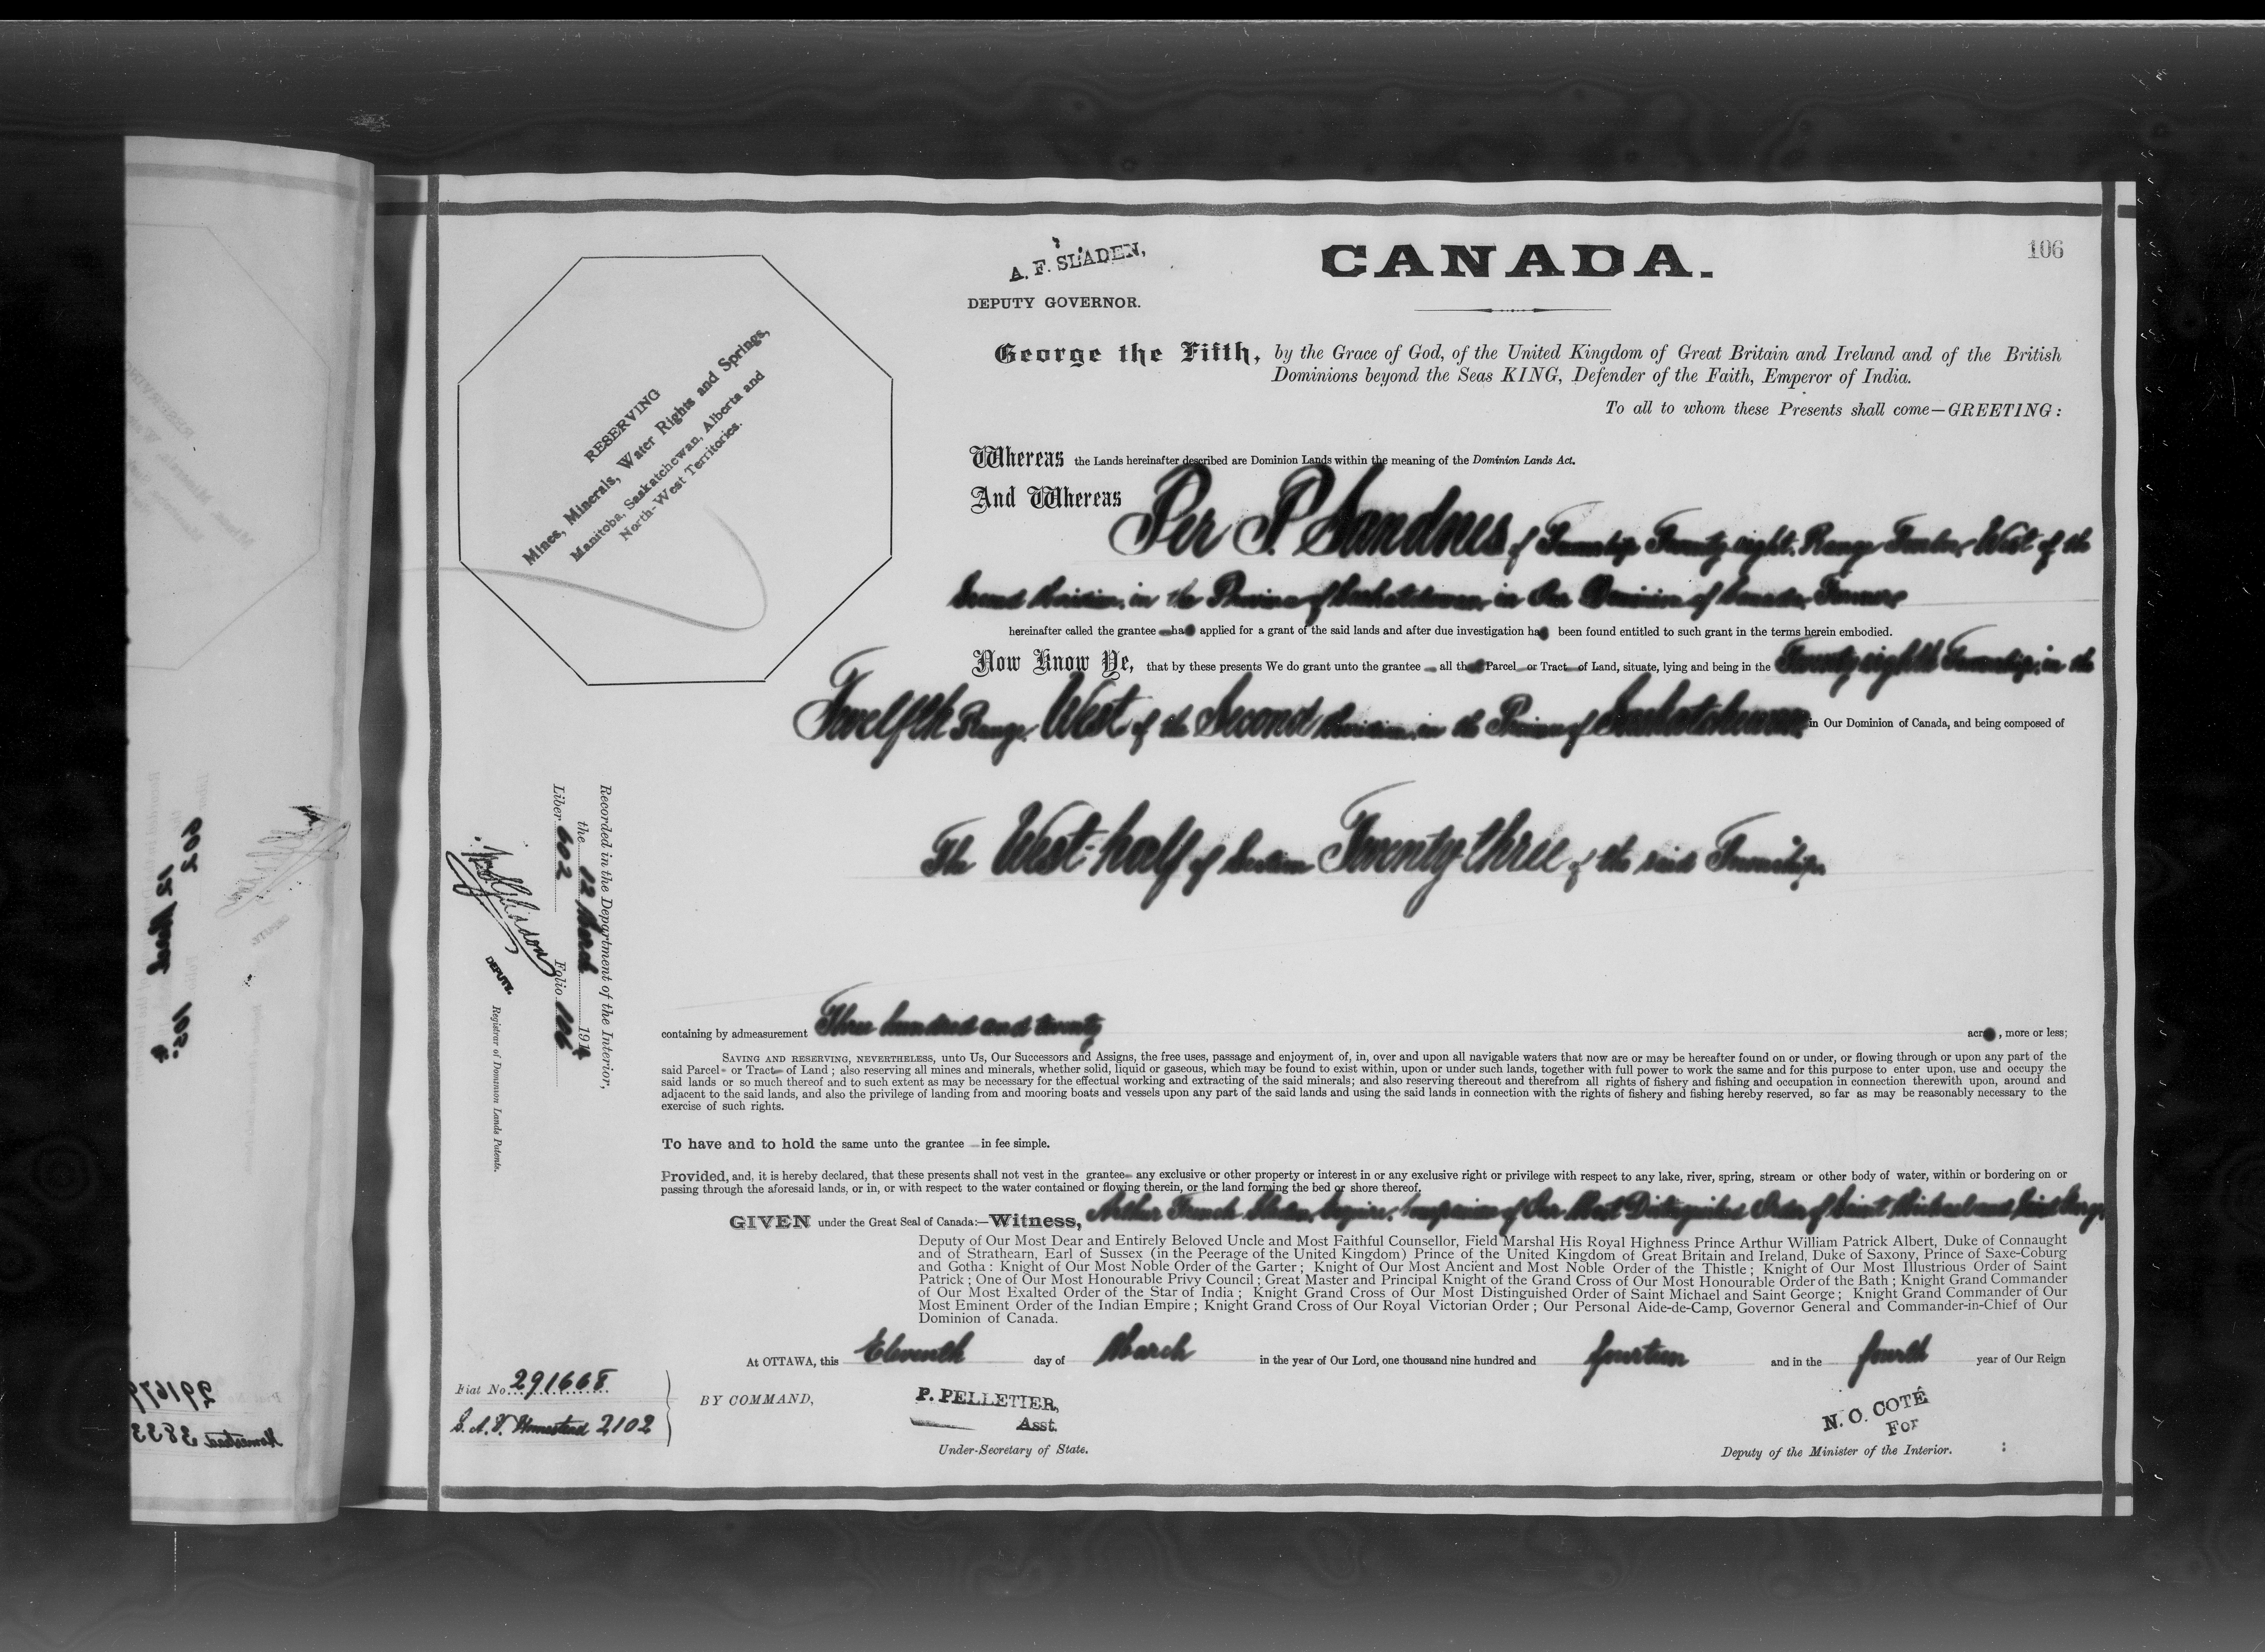 A. F. SLADEN,
DEPUTY GOVERNOR.
CANADA.
106
RESERVING
Mines, Minerals, Water Rights and Springs,
Manitoba, Saskatchewan, Alberta and
North-West Territories.
George the Fifth, by the Grace of God, of the United Kingdom of Great Britain and Ireland and of the British
Dominions beyond the Seas KING, Defender of the Faith, Emperor of India.
To all to whom these Presents shall come—GREETING:
Whereas the Lands hereinafter described are Dominion Lands within the meaning of the Dominion Lands Act.
And Whereas Per P. Sandnes of Township Twenty eight, Range Twelve West of the
Second Meridian, in the Province of Saskatchewan, in Our Dominion of Canada, Farmer
hereinafter called the grantee has applied for a grant of the said lands and after due investigation has been found entitled to such grant in the terms herein embodied.
Now Know Ye, that by these presents We do grant unto the grantee all that Parcel or Tract of Land, situate, lying and being in the Twenty eighth Township, in the
Twelfth Range, West of the Second Meridian, in the Province of Saskatchewan in Our Dominion of Canada, and being composed of
The West half of Section Twenty three of the said Township.
containing by admeasurement Three hundred and twenty acres, more or less;
SAVING AND RESERVING, NEVERTHELESS, unto Us, Our Successors and Assigns, the free uses, passage and enjoyment of, in, over and upon all navigable waters that now are or may be hereafter found on or under, or flowing through or upon any part of the
said Parcel or Tract of Land; also reserving all mines and minerals, whether solid, liquid or gaseous, which may be found to exist within, upon or under such lands, together with full power to work the same and for this purpose to enter upon, use and occupy the
said lands or so much thereof and to such extent as may be necessary for the effectual working and extracting of the said minerals; and also reserving thereout and therefrom all rights of fishery and fishing and occupation in connection therewith upon, around and
adjacent to the said lands, and also the privilege of landing from and mooring boats and vessels upon any part of the said lands and using the said lands in connection with the rights of fishery and fishing hereby reserved, so far as may be reasonably necessary to the
exercise of such rights.
To have and to hold the same unto the grantee in fee simple.
Provided, and, it is hereby declared, that these presents shall not vest in the grantee any exclusive or other property or interest in or any exclusive right or privilege with respect to any lake, river, spring, stream or other body of water, within or bordering on or
passing through the aforesaid lands, or in, or with respect to the water contained or flowing therein, or the land forming the bed or shore thereof.
GIVEN under the Great Seal of Canada:—Witness, Arthur French Sladen, Esquire, Companion of Our Most Distinguished Order of Saint Michael and Saint George,
Deputy of Our Most Dear and Entirely Beloved Uncle and Most Faithful Counsellor, Field Marshal His Royal Highness Prince Arthur William Patrick Albert, Duke of Connaught
and of Strathearn, Earl of Sussex (in the Peerage of the United Kingdom) Prince of the United Kingdom of Great Britain and Ireland, Duke of Saxony, Prince of Saxe-Coburg
and Gotha: Knight of Our Most Noble Order of the Garter; Knight of Our Most Ancient and Most Noble Order of the Thistle; Knight of Our Most Illustrious Order of Saint
Patrick; One of Our Most Honourable Privy Council; Great Master and Principal Knight of the Grand Cross of Our Most Honourable Order of the Bath; Knight Grand Commander
of Our Most Exalted Order of the Star of India; Knight Grand Cross of Our Most Distinguished Order of Saint Michael and Saint George; Knight Grand Commander of Our
Most Eminent Order of the Indian Empire; Knight Grand Cross of Our Royal Victorian Order; Our Personal Aide-de-Camp, Governor General and Commander-in-Chief of Our
Dominion of Canada.
At OTTAWA, this Eleventh day of March in the year of Our Lord, one thousand nine hundred and fourteen and in the fourth year of Our Reign
BY COMMAND,
P. PELLETIER,
Asst.
Under-Secretary of State.
N. O. COTÉ
For
Deputy of the Minister of the Interior.
Fiat No. 291668
S. A. V. Homestead 2102
Recorded in the Department of the Interior,
the 12 March 1914
Liber 602 Folio 106
DEPUTY.
Registrar of Dominion Lands Patents.